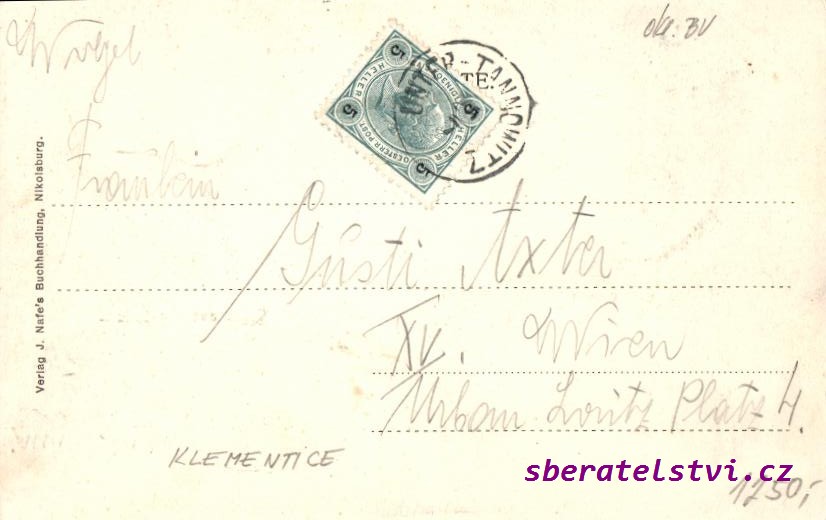 okr. BV
5 HELLER 5 HELLER 5 5
OESTERR. POST.
UNTER-TANNOWITZ
Fräulein
Gusti Axter
XV. Wien
Urban Loritz Platz 4.
Verlag J. Nafe's Buchhandlung, Nikolsburg.
KLEMENTICE
sberatelstvi.cz
1250,-